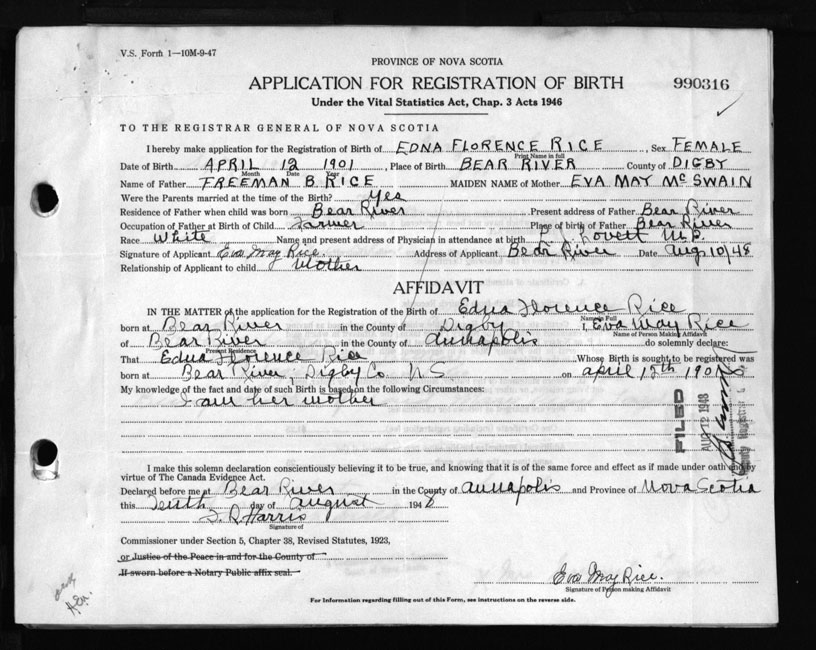 V.S. Form 1—10M-9-47
PROVINCE OF NOVA SCOTIA
APPLICATION FOR REGISTRATION OF BIRTH 990316
Under the Vital Statistics Act, Chap. 3 Acts 1946
TO THE REGISTRAR GENERAL OF NOVA SCOTIA
I hereby make application for the Registration of Birth of EDNA FLORENCE RICE, Sex FEMALE
Print Name in full
Date of Birth APRIL 12 1901, Place of Birth BEAR RIVER County of DIGBY
Month Date Year
Name of Father FREEMAN B. RICE MAIDEN NAME of Mother EVA MAY McSWAIN
Were the Parents married at the time of the Birth? Yes
Residence of Father when child was born Bear River Present address of Father Bear River
Occupation of Father at Birth of Child Farmer Place of birth of Father Bear River
Race White Name and present address of Physician in attendance at birth Lovett M.D.
Signature of Applicant Eva May Rice. Address of Applicant Bear River Date Aug 10/48
Relationship of Applicant to child Mother
AFFIDAVIT
IN THE MATTER of the application for the Registration of the Birth of Edna Florence Rice
Name in Full
born at Bear River in the County of Digby I, Eva May Rice
Name of Person Making Affidavit
of Bear River in the County of Annapolis do solemnly declare:
Present Residence
That Edna Florence Rice Whose Birth is sought to be registered was
born at Bear River, Digby Co. N.S. on April 12th 1901
My knowledge of the fact and date of such Birth is based on the following Circumstances:
I am her mother
FILED
AUG 12 1948
I make this solemn declaration conscientiously believing it to be true, and knowing that it is of the same force and effect as if made under oath and by
virtue of The Canada Evidence Act.
Declared before me at Bear River in the County of Annapolis and Province of Nova Scotia
this Tenth day of August 1948
Harris
Signature of
Commissioner under Section 5, Chapter 38, Revised Statutes, 1923,
or Justice of the Peace in and for the County of
If sworn before a Notary Public affix seal.
Eva May Rice.
Signature of Person making Affidavit
For Information regarding filling out of this Form, see instructions on the reverse side.